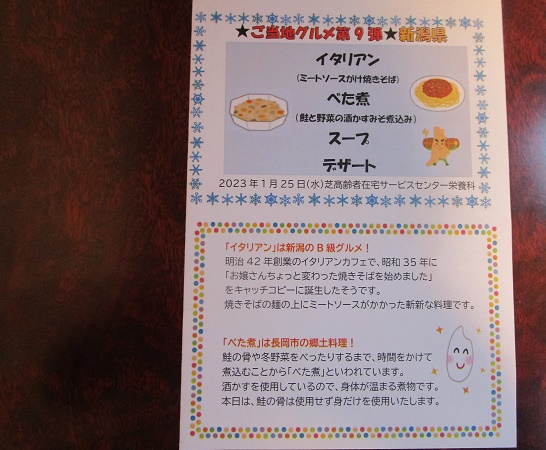 ★ご当地グルメ第9弾★新潟県
イタリアン
(ミートソースがけ焼きそば)
べた煮
(鮭と野菜の酒かすみそ煮込み)
スープ
デザート
2023年1月25日(水)芝高齢者在宅サービスセンター栄養科
「イタリアン」は新潟のB級グルメ！
明治42年創業のイタリアンカフェで、昭和35年に
「お嬢さんちょっと変わった焼きそばを始めました」
をキャッチコピーに誕生したそうです。
焼きそばの麺の上にミートソースがかかった斬新な料理です。
「べた煮」は長岡市の郷土料理！
鮭の骨や冬野菜をべったりするまで、時間をかけて
煮込むことから「べた煮」といわれています。
酒かすを使用しているので、身体が温まる煮物です。
本日は、鮭の骨は使用せず身だけを使用いたします。